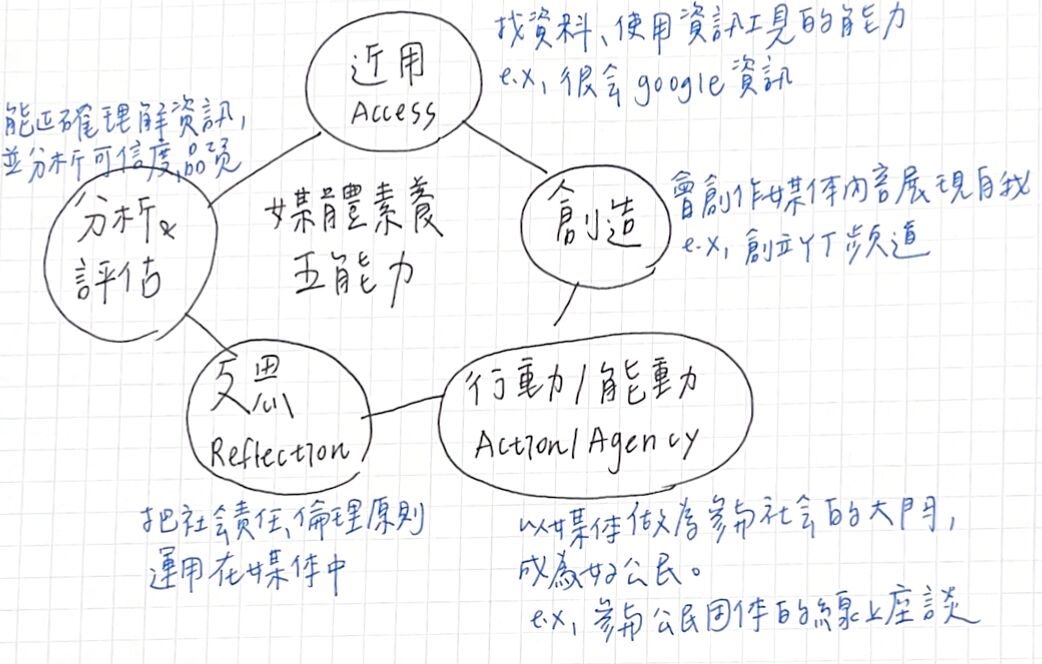 近用
Access
找資料、使用資訊工具的能力
e.x, 很会 google 資訊
能正確理解資訊,
並分析可信度,品質
分析&
評估
媒體素養
五能力
創造
會創作媒体內容展現自我
e.x, 創立YT頻道
反思
Reflection
把社会責任、倫理原則
運用在媒体中
行動/能動
Action/Agency
以媒体做為參與社会的大門,
成為好公民。
e.x, 參與公民团体的線上座談